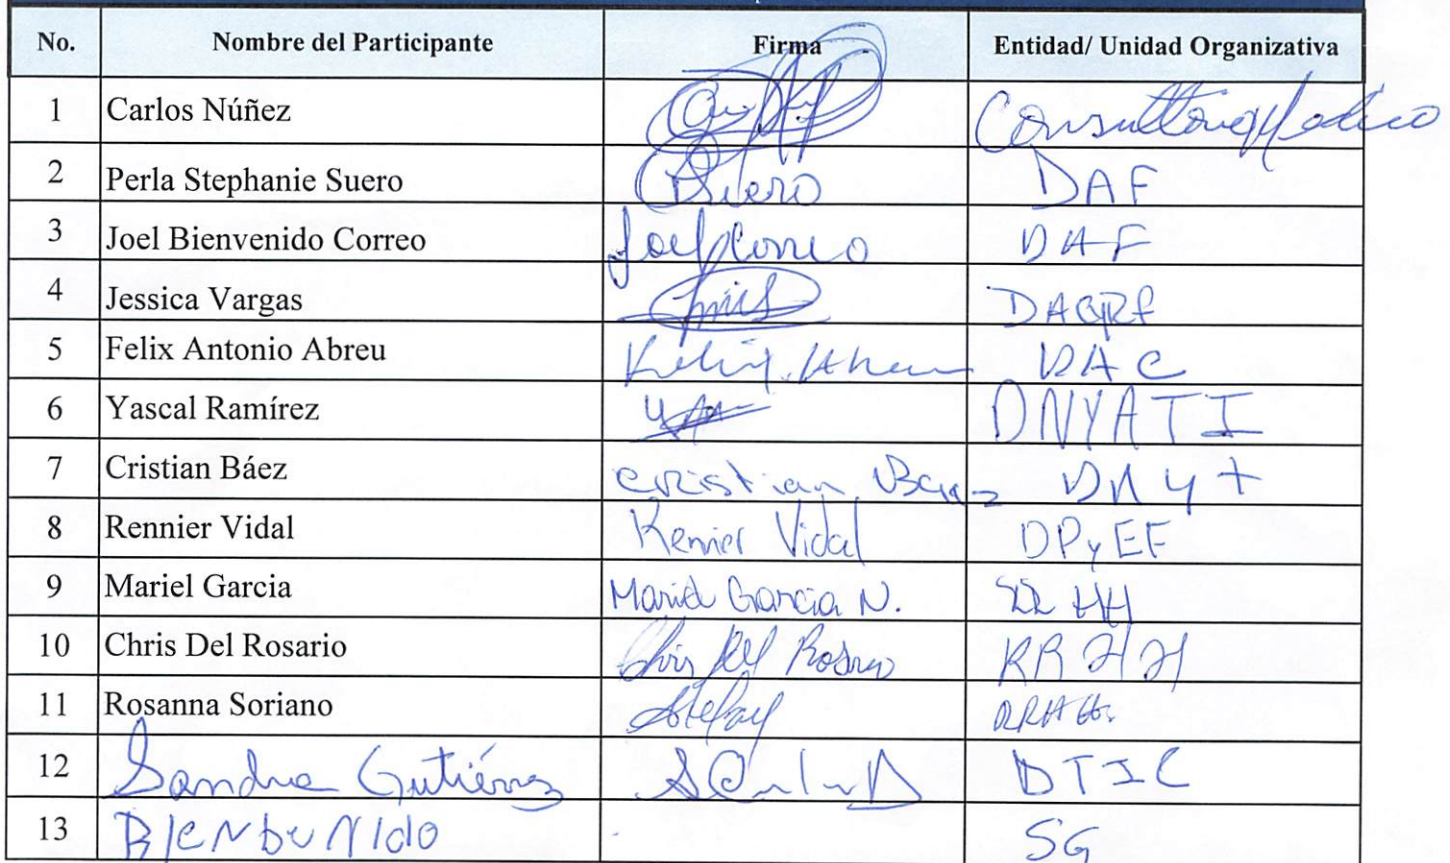 No. Nombre del Participante Firma Entidad/ Unidad Organizativa
1 Carlos Núñez
2 Perla Stephanie Suero Suero DAF
3 Joel Bienvenido Correo Joel Correo DAF
4 Jessica Vargas
5 Felix Antonio Abreu Felix. DAC
6 Yascal Ramírez DNYATI
7 Cristian Báez Cristian Baez DNYT
8 Rennier Vidal Rennier Vidal DPyEF
9 Mariel Garcia Mariel Garcia N. RRHH
10 Chris Del Rosario Chris Del Rosario RRHH
11 Rosanna Soriano RRHH.
12 Sandra Gutiérrez DTIC
13 BIENbeNIdo SG